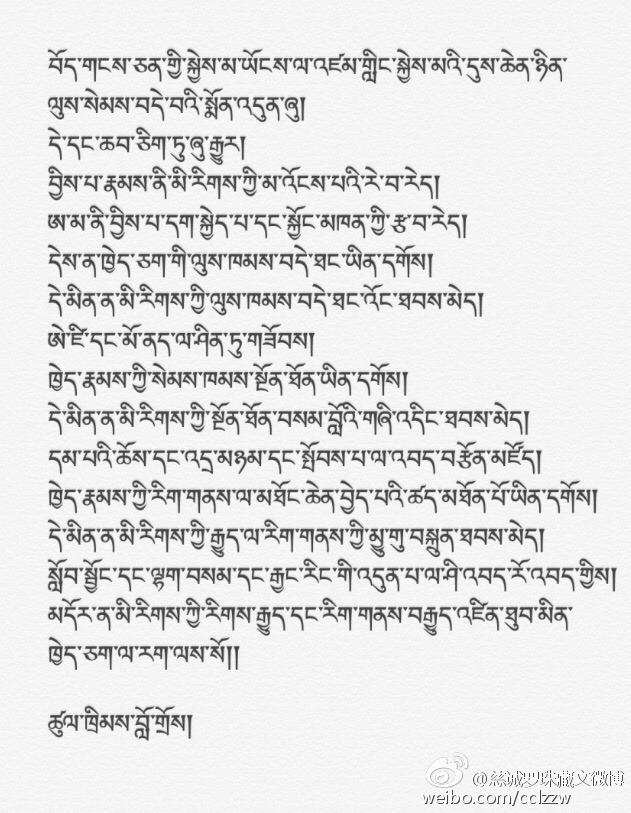 བོད་གངས་ཅན་གྱི་སྐྱེས་མ་ཡོངས་ལ་འཛམ་གླིང་སྐྱེས་མའི་དུས་ཆེན་ཉིན་
ལུས་སེམས་བདེ་བའི་སྨོན་འདུན་ཞུ།
དེ་དང་ཆབ་ཅིག་ཏུ་ཞུ་རྒྱུར།
བྱིས་པ་རྣམས་ནི་མི་རིགས་ཀྱི་མ་འོངས་པའི་རེ་བ་རེད།
ཨ་མ་ནི་བྱིས་པ་དག་སྐྱེད་པ་དང་སྐྱོང་མཁན་ཀྱི་རྩ་བ་རེད།
དེས་ན་ཁྱེད་ཅག་གི་ལུས་ཁམས་བདེ་ཐང་ཡིན་དགོས།
དེ་མིན་ན་མི་རིགས་ཀྱི་ལུས་ཁམས་བདེ་ཐང་འོང་ཐབས་མེད།
ཨེ་ཛི་དང་མོ་ནད་ལ་ཤིན་ཏུ་གཟོབས།
ཁྱེད་རྣམས་ཀྱི་སེམས་ཁམས་སྔོན་ཐོན་ཡིན་དགོས།
དེ་མིན་ན་མི་རིགས་ཀྱི་སྔོན་ཐོན་བསམ་བློའི་གཞི་འདིང་ཐབས་མེད།
དམ་པའི་ཆོས་དང་འདྲ་མཉམ་དང་སྤོབས་པ་ལ་འབད་བརྩོན་མཛོད།
ཁྱེད་རྣམས་ཀྱི་རིག་གནས་ལ་མཐོང་ཆེན་བྱེད་པའི་ཚད་མཐོན་པོ་ཡིན་དགོས།
དེ་མིན་ན་མི་རིགས་ཀྱི་རྒྱུད་ལ་རིག་གནས་ཀྱི་མྱུ་གུ་བསྐྲུན་ཐབས་མེད།
སློབ་སྦྱོང་དང་ལྷག་བསམ་དང་རྒྱང་རིང་གི་འདུན་པ་ལ་ཤི་འབད་རོ་འབད་གྱིས།
མདོར་ན་མི་རིགས་ཀྱི་རིགས་རྒྱུད་དང་རིག་གནས་བརྒྱུད་འཛིན་ཐུབ་མིན་
ཁྱེད་ཅག་ལ་རག་ལས་སོ།།
ཚུལ་ཁྲིམས་བློ་གྲོས།
@慈诚罗珠藏文微博
weibo.com/cclzzw